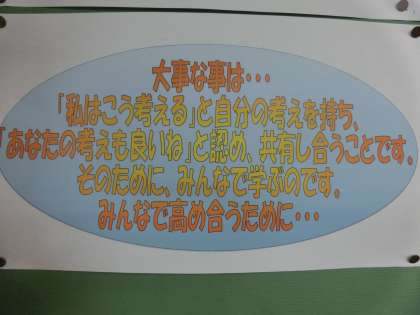 大事な事は・・・
「私はこう考える」と自分の考えを持ち、
「あなたの考えも良いね」と認め、共有し合うことです。
そのために、みんなで学ぶのです。
みんなで高め合うために・・・